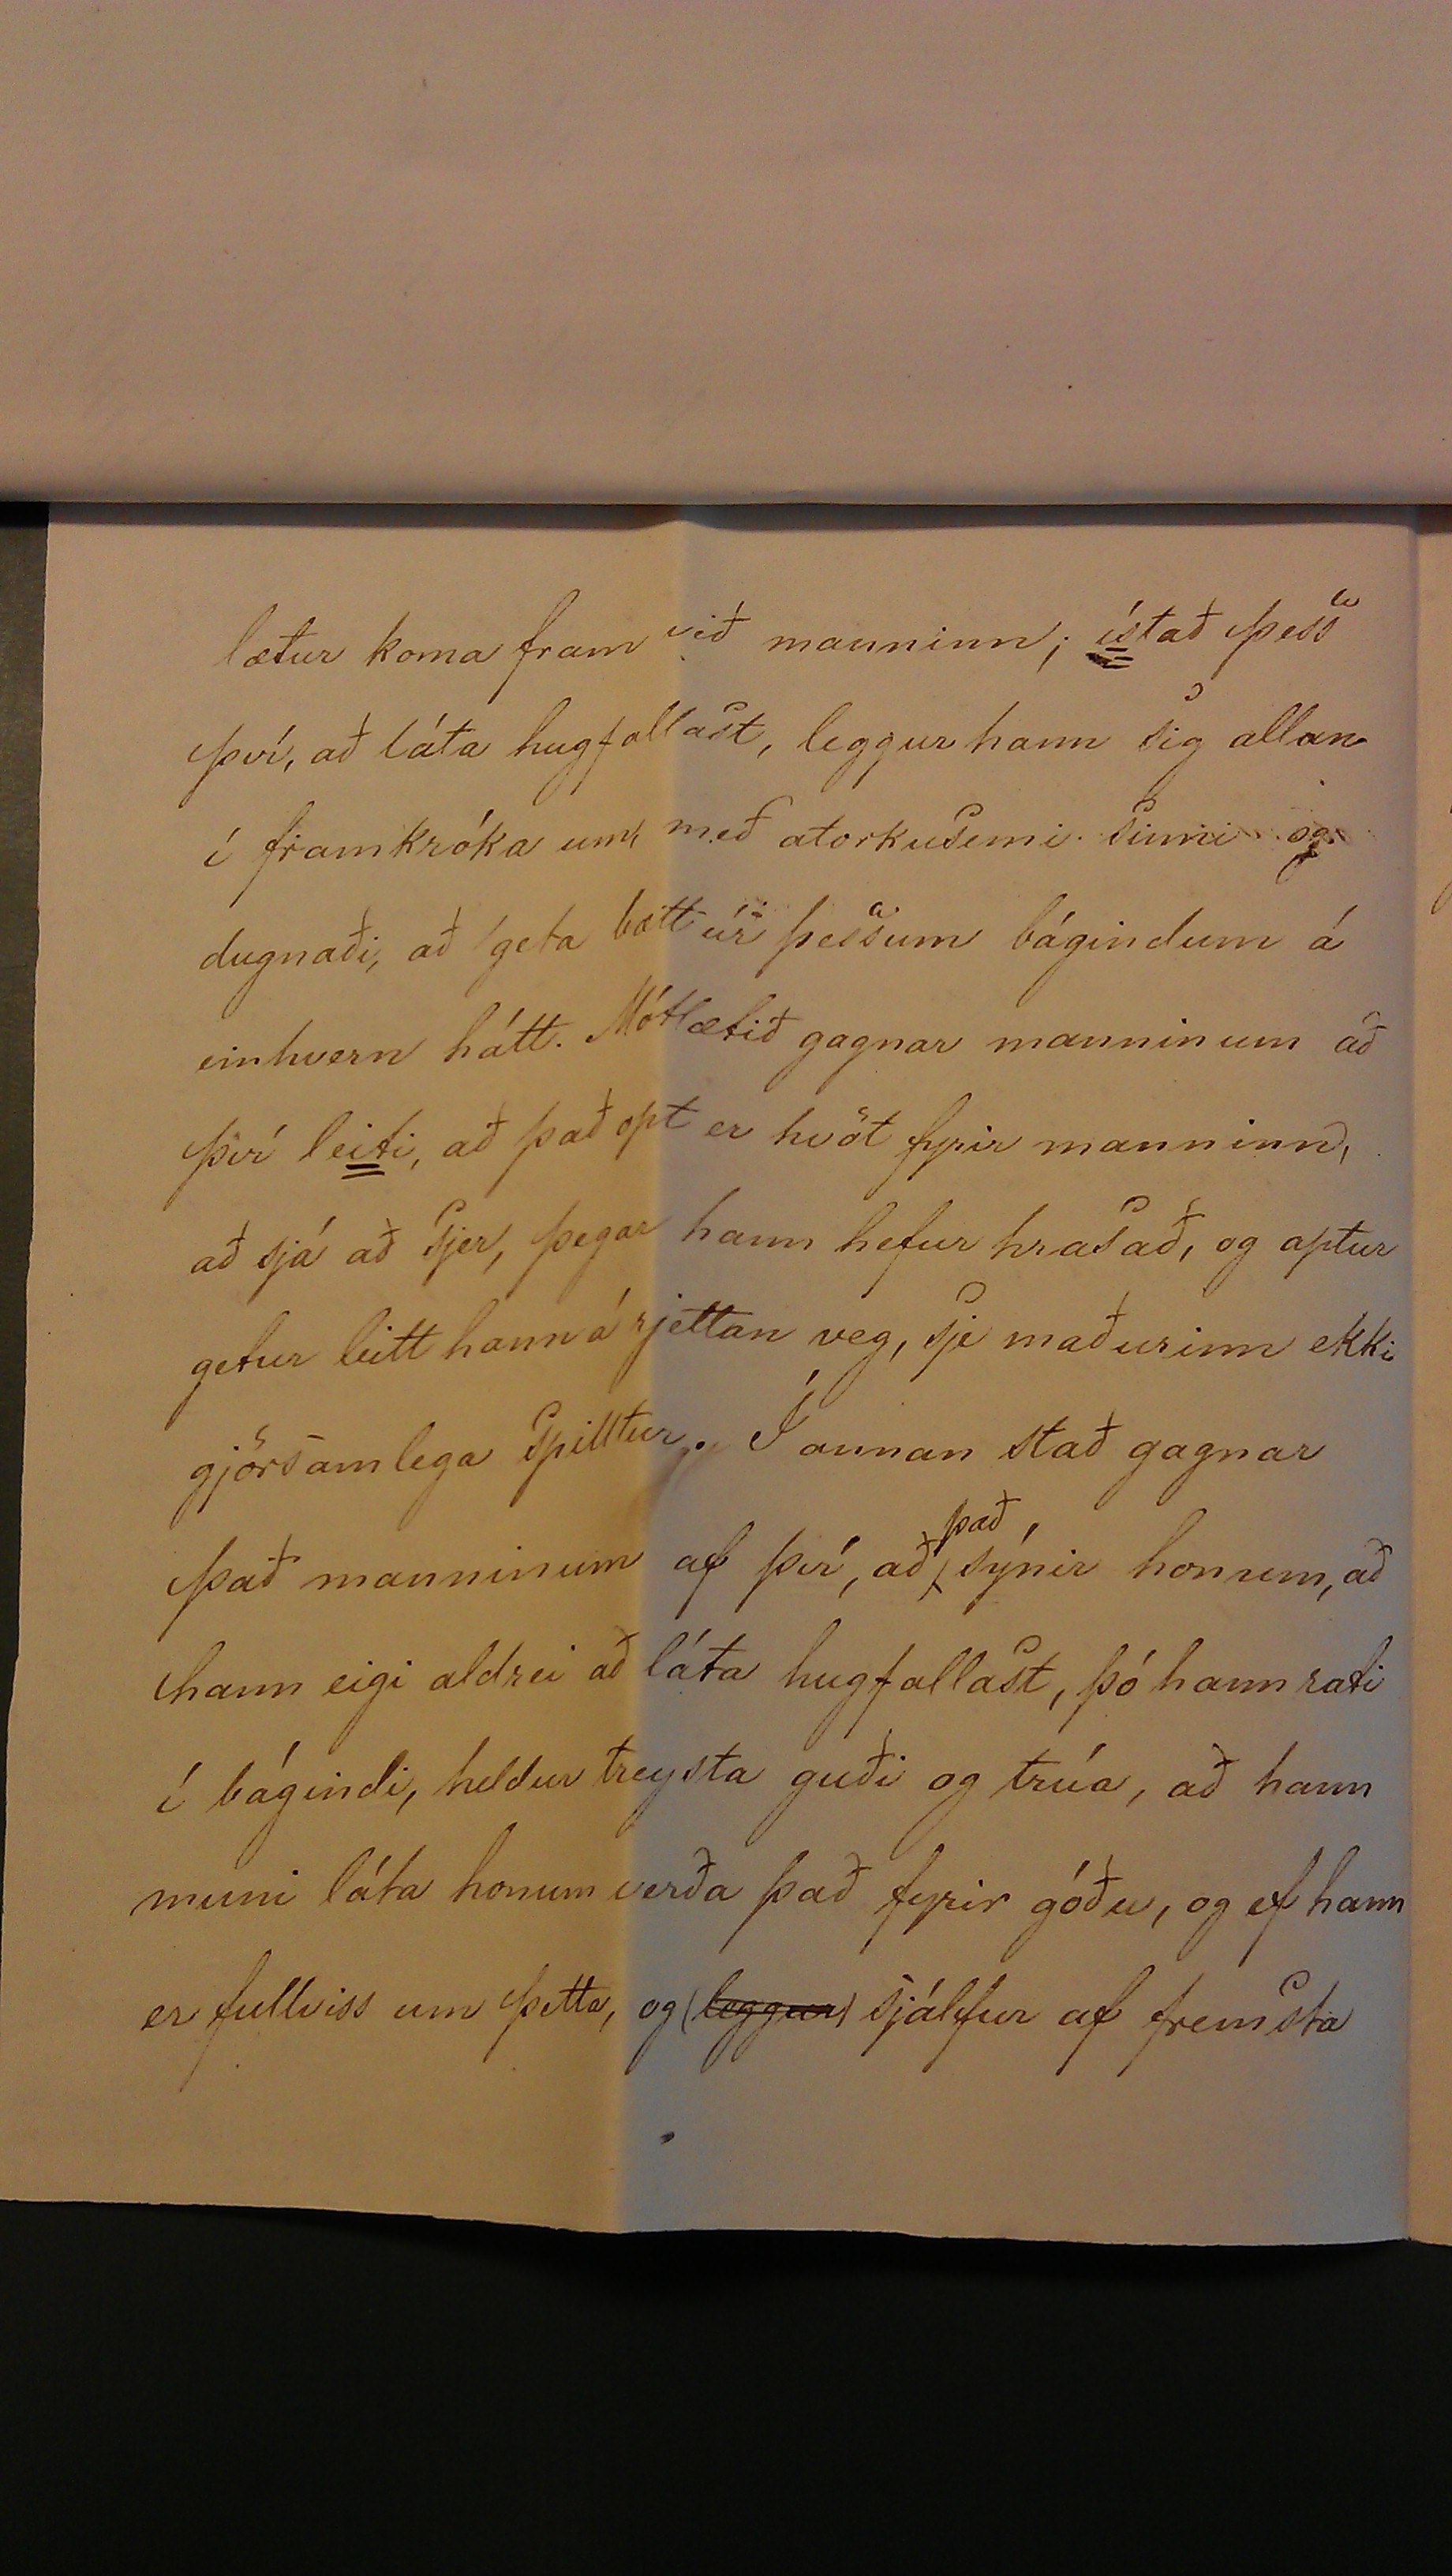 lætur koma fram við manninn; ístað þess
því, að láta hugfallast, leggur hann sig allan
í framkróka um, með atorkusemi sinni og
dugnaði, að geta bætt úr þessum bágindum á
einhvern hátt. Mótlætið gagnar manninum að
því leiti, að það opt er hvöt fyrir manninn,
að sjá að sjer, þegar hann hefur hrasað, og aptur
getur leitt hann á rjettan veg, sje maðurinn ekki
gjörsamlega spilltur. Í annan stað gagnar
það manninum af því, að það sýnir honum, að
hann eigi aldrei að láta hugfallast, þó hann rati
í bágindi, heldur treysta guði og trúa, að hann
muni láta honum verða það fyrir góðu, og ef hann
er fullviss um þetta, og (leggur) sjálfur af fremsta